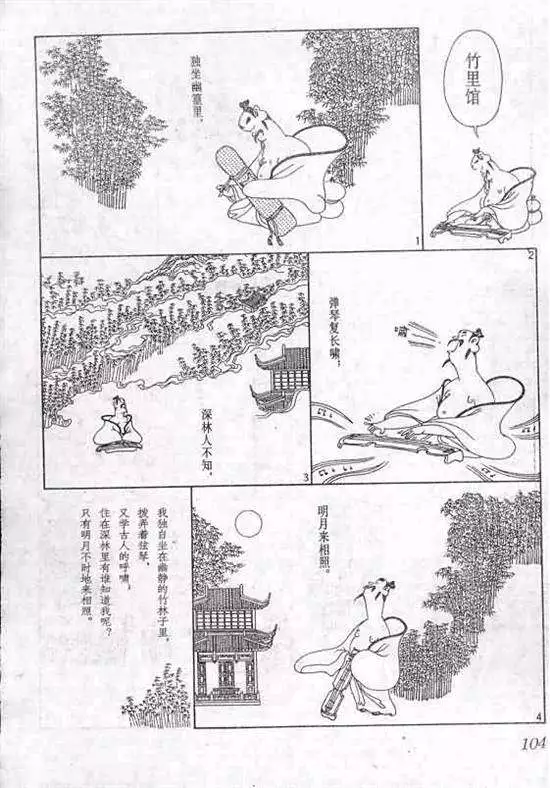 竹里馆
独坐幽篁里，
1
弹琴复长啸；
2
深林人不知，
3
明月来相照。
4
我独自坐在幽静的竹林子里，
拨弄着弦琴，
又学古人的呼啸；
住在深林里有谁知道我呢？
只有明月不时地来相照。
104